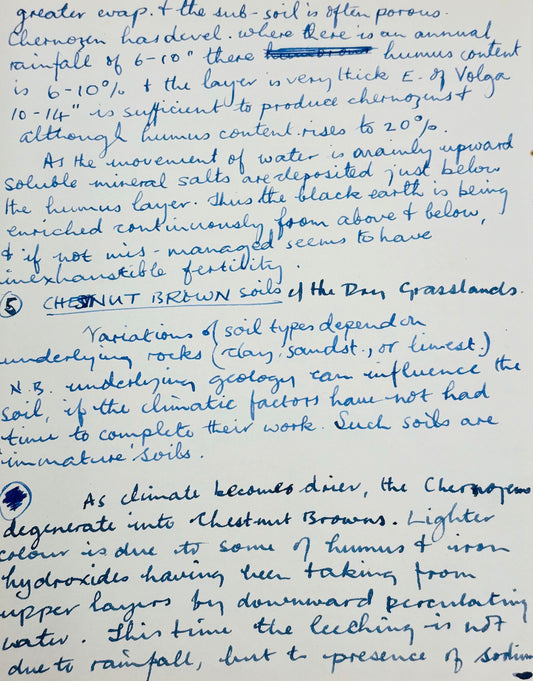 greater evap. & the sub-soil is often porous.
Chernozen has devel. where there is an annual
rainfall of 6-10" there humus content
is 6-10% & the layer is very thick E. of Volga
10-14" is sufficient to produce chernozens &
although humus content rises to 20%.
As the movement of water is mainly upward
soluble mineral salts are deposited just below
the humus layer. Thus the black earth is being
enriched continuously from above & below,
& if not mis-managed seems to have
inexhaustible fertility.
5 CHESNUT BROWN SOILS of the Dry Grasslands.
Variations of soil types depend on
underlying rocks (clay, sandst., or limest.)
N.B. underlying geology can influence the
soil, if the climatic factors have not had
time to complete their work. Such soils are
'immature' soils.
As climate becomes drier, the Chernozems
degenerate into Chestnut Browns. Lighter
colour is due to some of humus & iron
hydroxides having been taking from
upper layers by downward perculating
water. This time the leeching is not
due to rainfall, but to presence of sodium